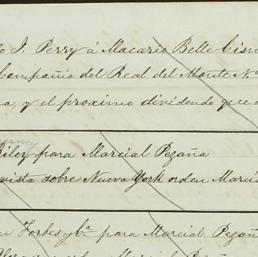 o J. Perry á Macario Belle Cisn
Compañia del Real del Monte Nº
a, y el proximo dividendo que a
Riley para Marcial Pezaña
vista sobre Nueva York orden Marci
Forbes y Cª para Marcial Pezañ
para Marcial Pezañ